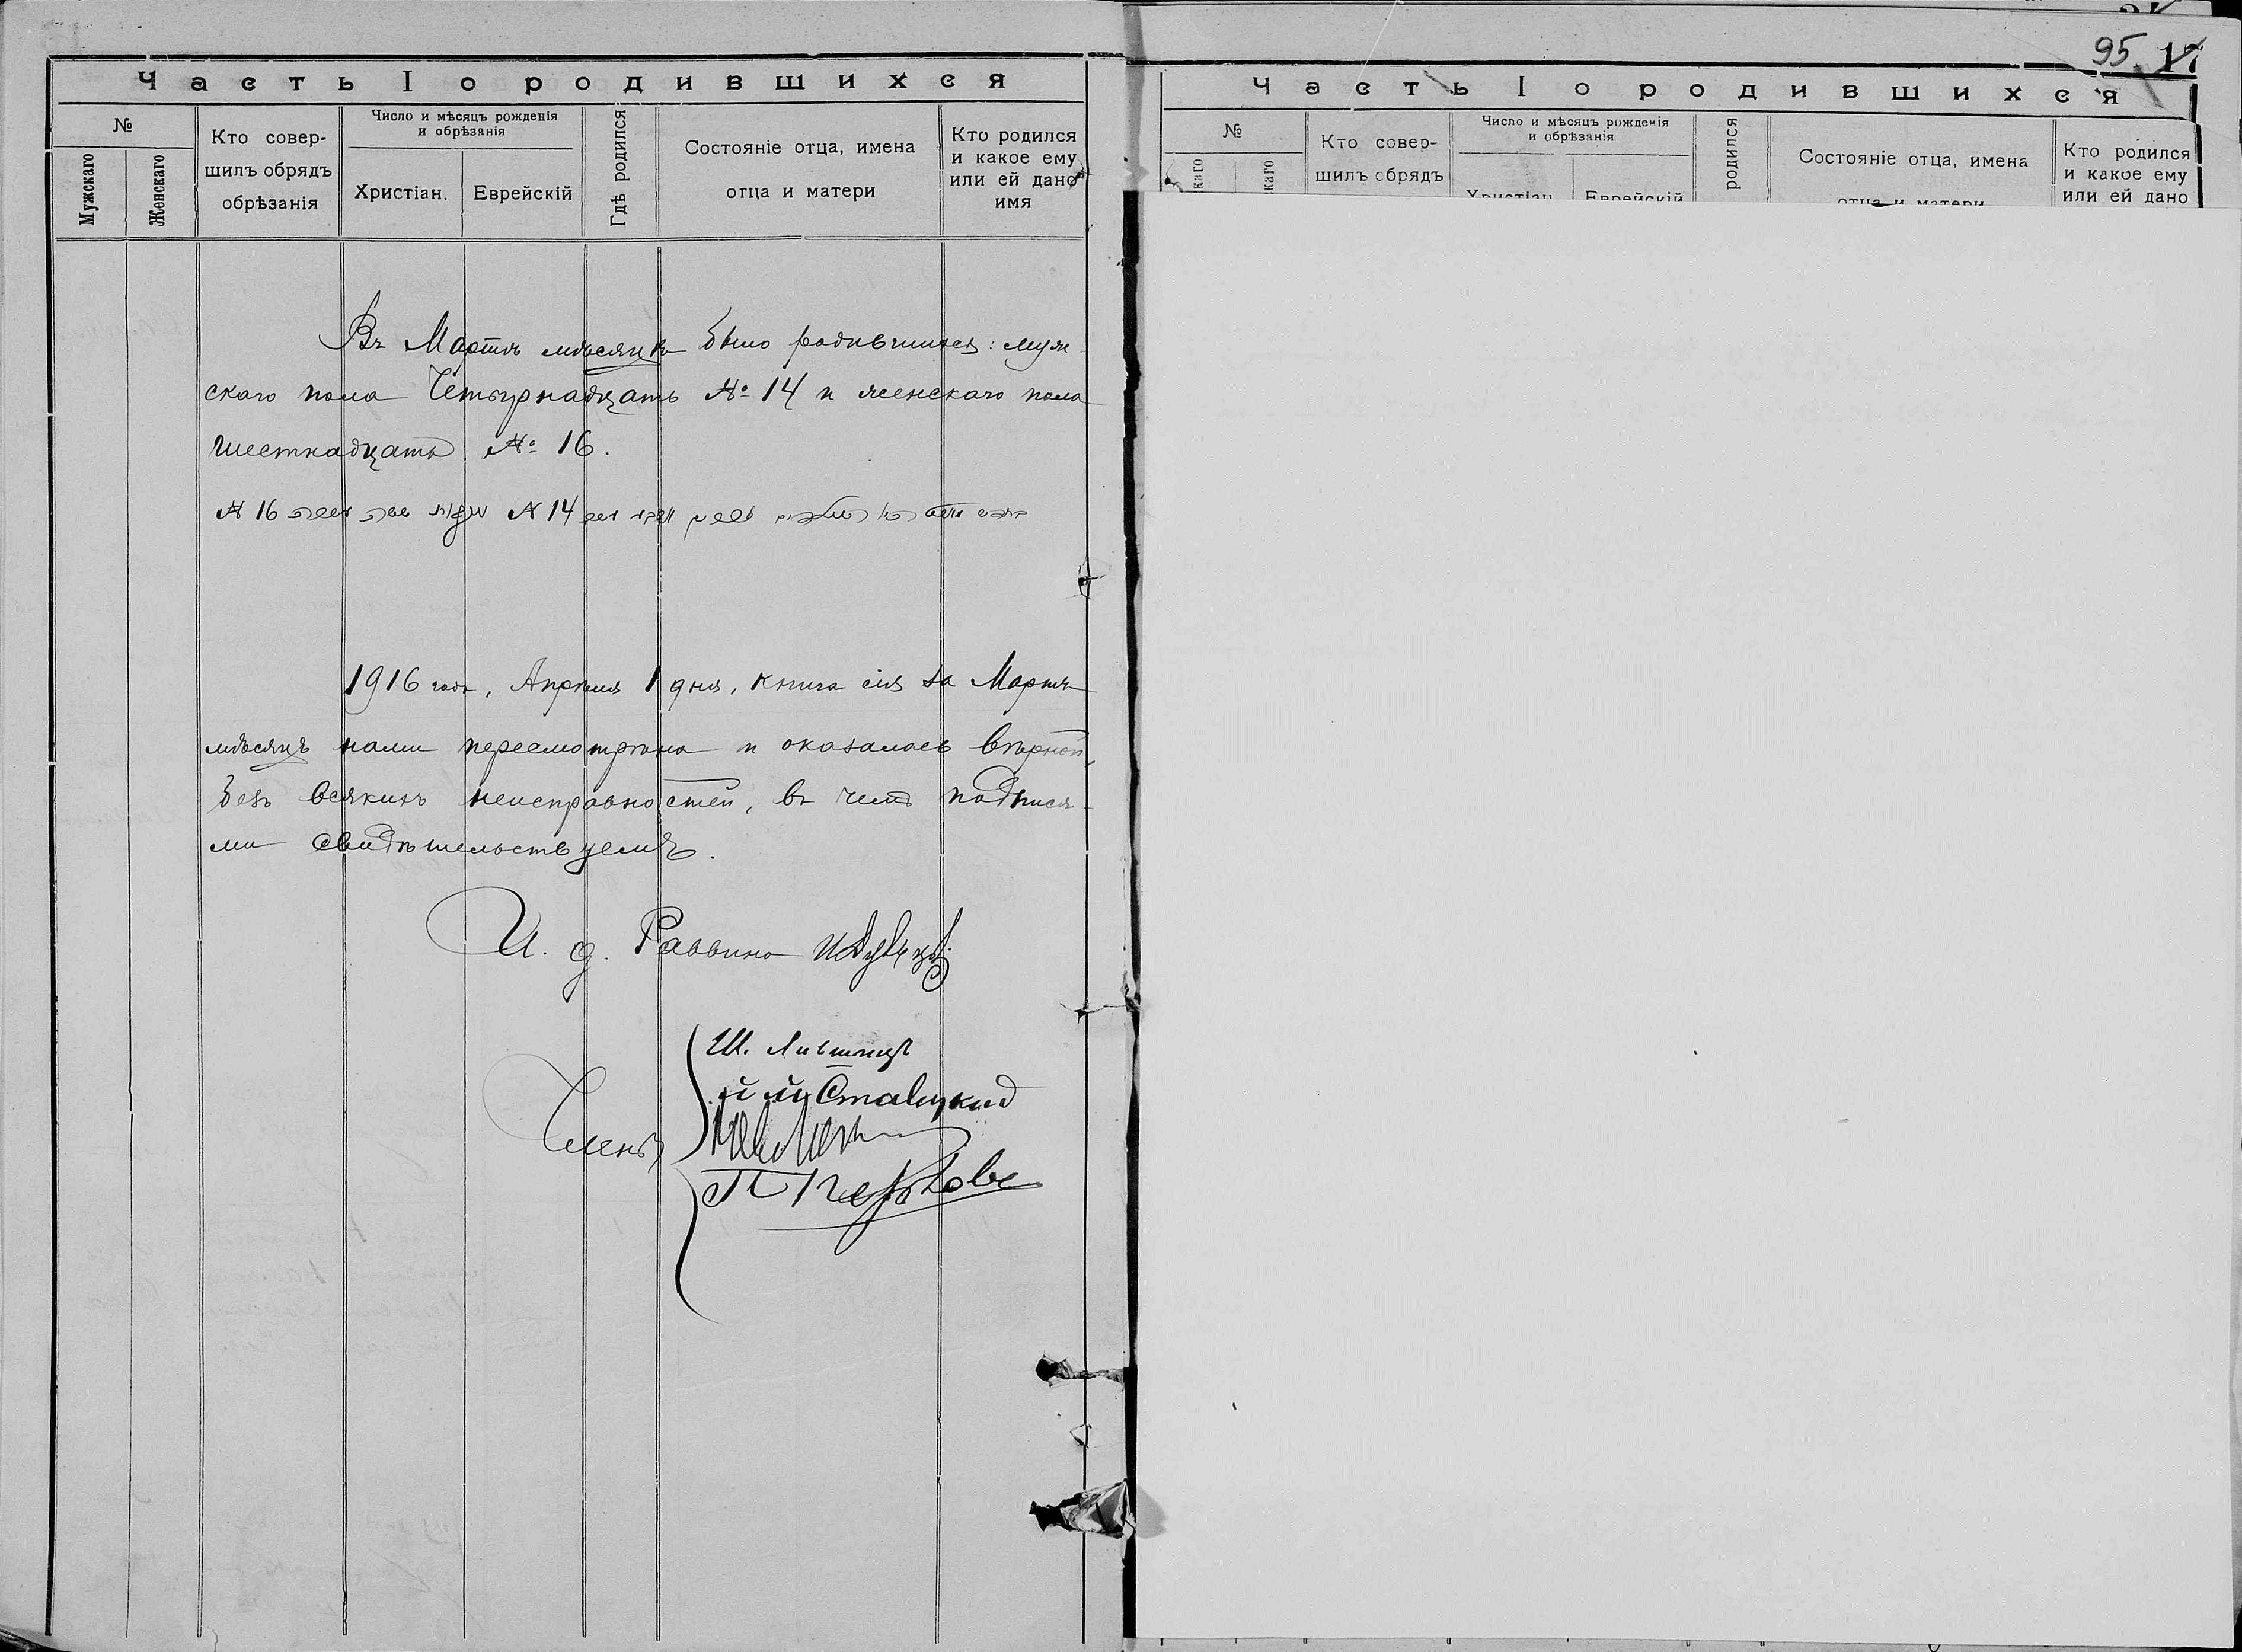 Часть I о родившихся
№
Мужскаго
Женскаго
Кто совер-
шилъ обрядъ
обрѣзанія
Число и мѣсяцъ рожденія
и обрѣзанія
Христіан.
Еврейскій
Гдѣ родился
Состояніе отца, имена
отца и матери
Кто родился
и какое ему
или ей дано
имя
Въ Мартѣ мѣсяцѣ было родившихся: муж-
скаго пола Четырнадцать № 14 и женскаго пола
шестнадцать № 16.
№ 16 № 14
1916 года, Апрѣля 1 дня, книга сія за Мартъ
мѣсяцъ нами пересмотрѣна и оказалась вѣрной,
безъ всякихъ неисправностей, въ чемъ подпися-
ми свидѣтельствуемъ.
И. д. Раввина
Члены
Ш. Лившицъ
Ставицкий
95 17
Часть I о родившихся
№
каго
каго
Кто совер-
шилъ обрядъ
Число и мѣсяцъ рожденія
и обрѣзанія
Христіан.
Еврейскій
родился
Состояніе отца, имена
отца и матери
Кто родился
и какое ему
или ей дано